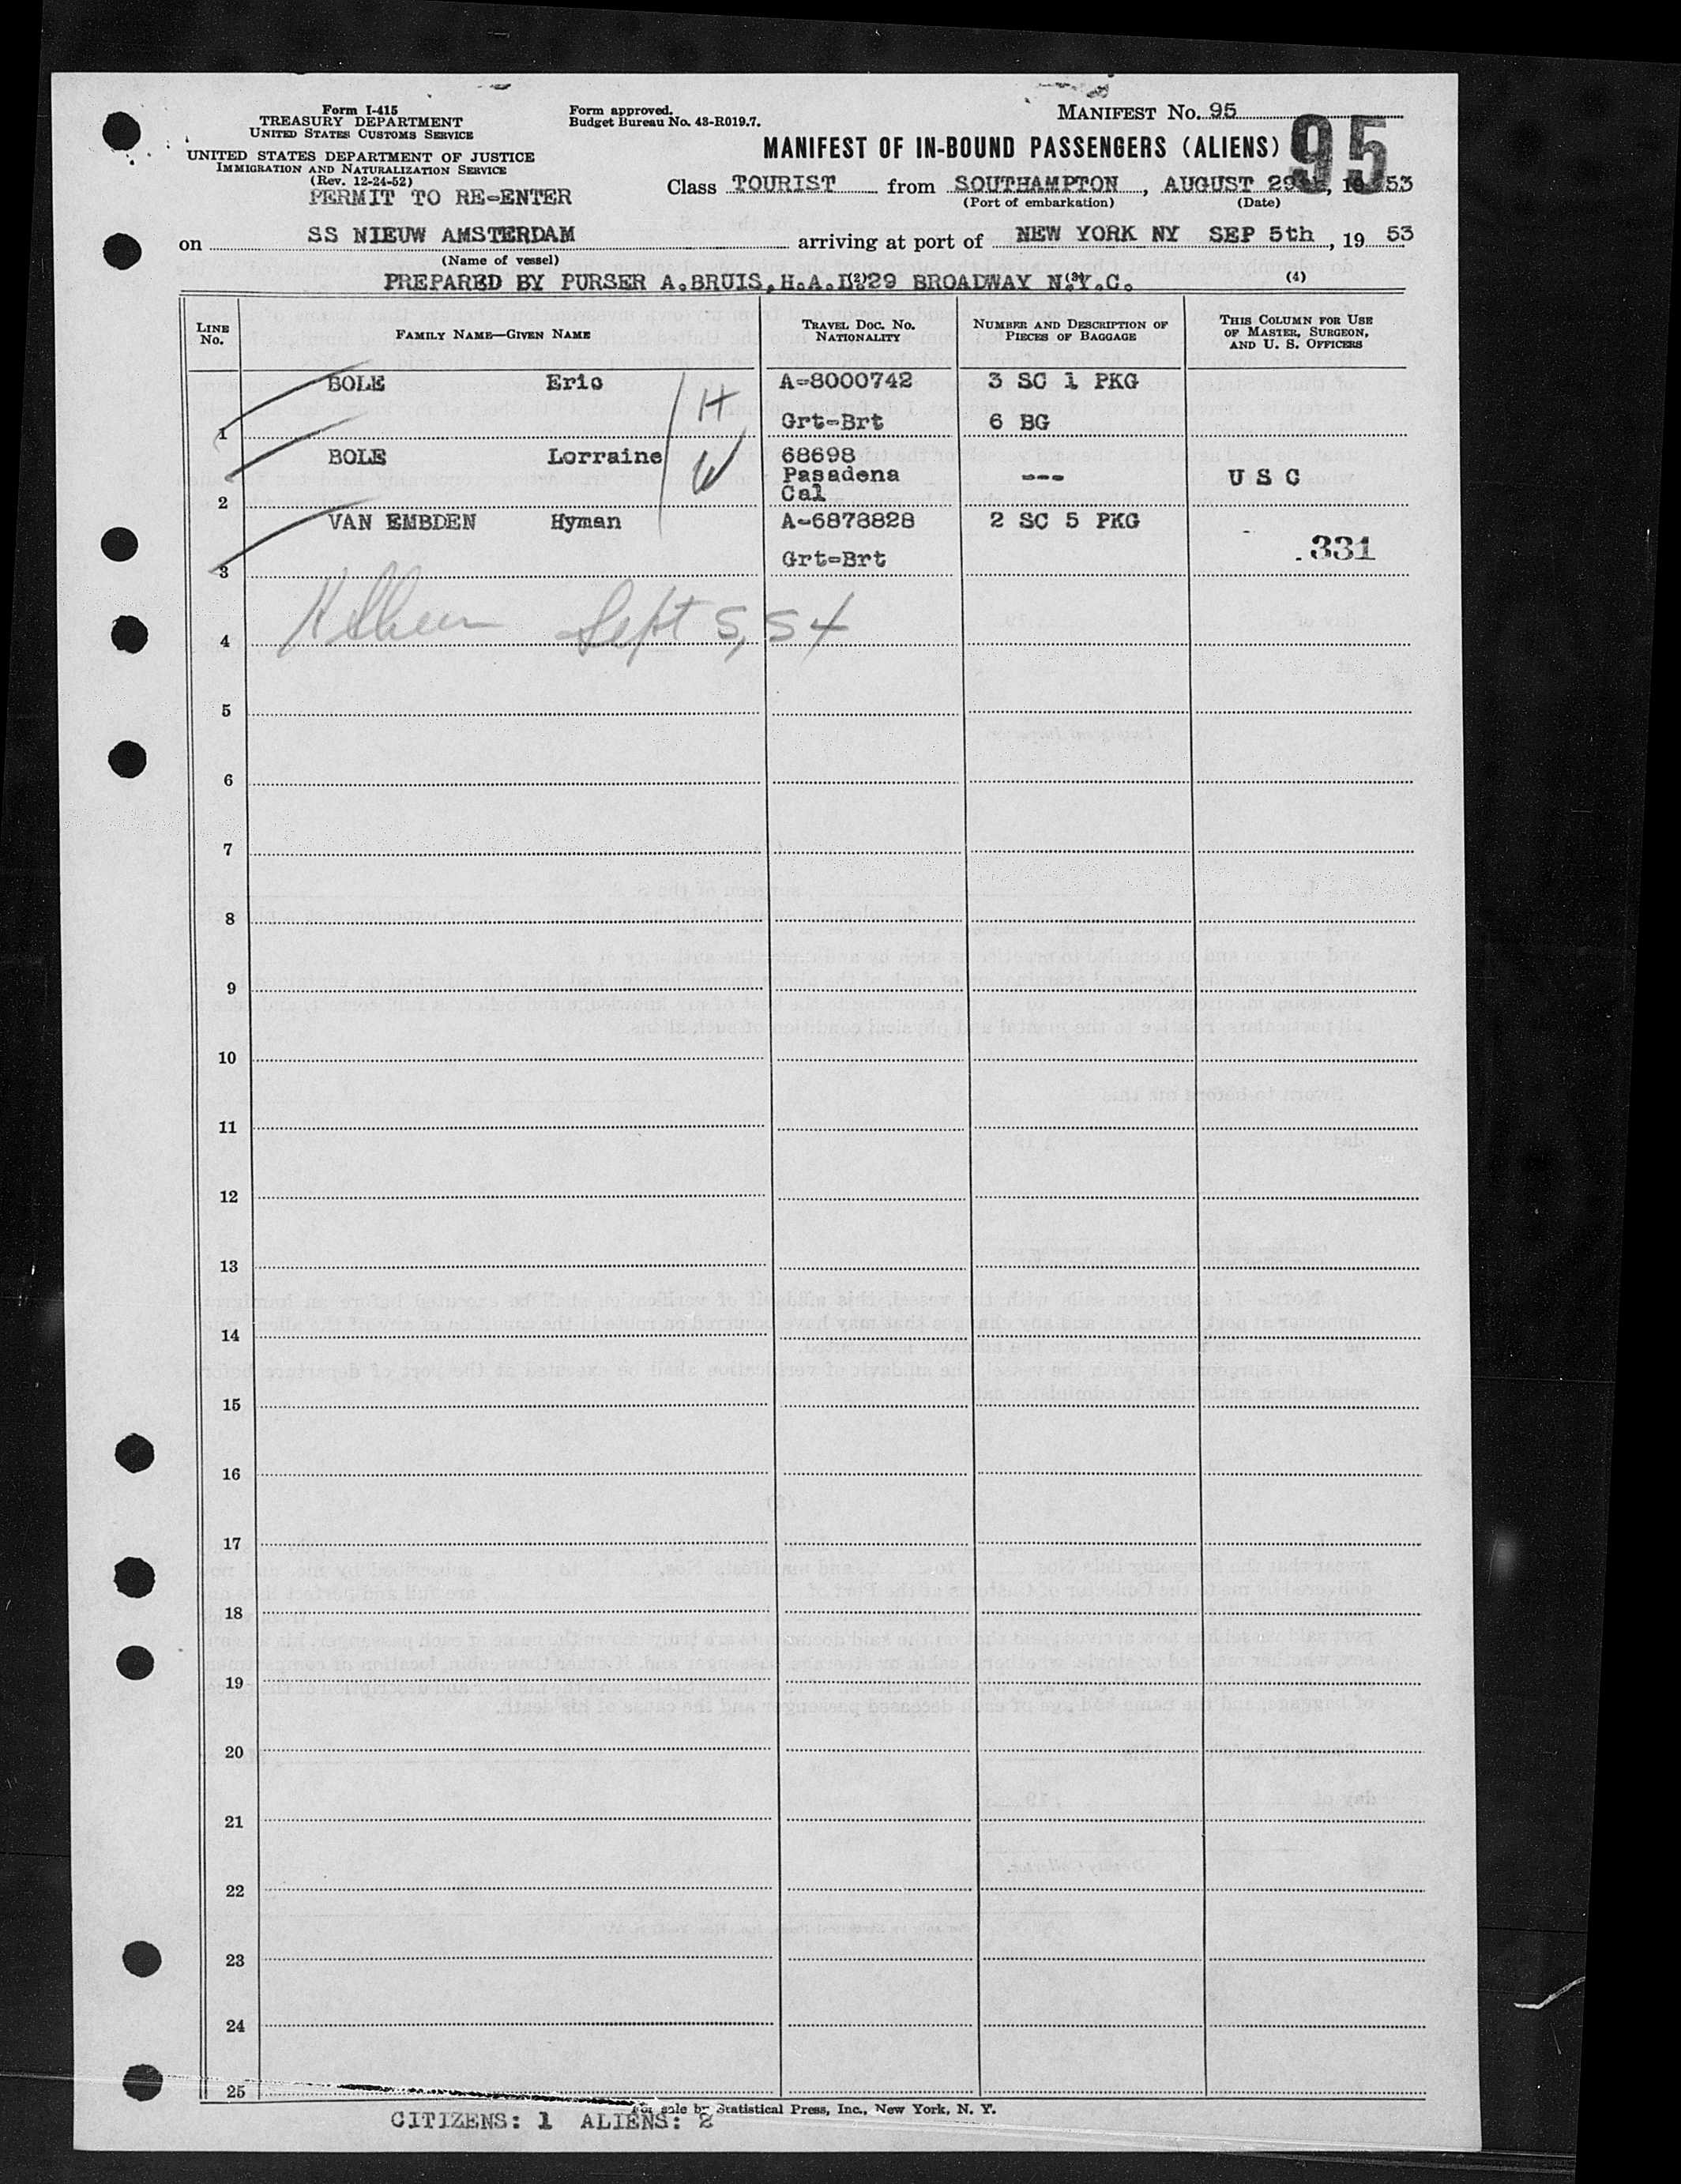 Form I-415
TREASURY DEPARTMENT
UNITED STATES CUSTOMS SERVICE
UNITED STATES DEPARTMENT OF JUSTICE
IMMIGRATION AND NATURALIZATION SERVICE
(Rev. 12-24-52)
PERMIT TO RE-ENTER
Form approved.
Budget Bureau No. 43-R019.7.
MANIFEST No. 95
95
MANIFEST OF IN-BOUND PASSENGERS (ALIENS)
Class TOURIST from SOUTHAMPTON, AUGUST 29th, 1953
(Port of embarkation) (Date)
on SS NIEUW AMSTERDAM arriving at port of NEW YORK NY SEP 5th, 19 53
(Name of vessel)
PREPARED BY PURSER A.BRUIS,H.A.L 29 BROADWAY N.Y.C.
(2) (3) (4)
LINE No. FAMILY NAME—GIVEN NAME TRAVEL DOC. NO. NATIONALITY NUMBER AND DESCRIPTION OF PIECES OF BAGGAGE THIS COLUMN FOR USE OF MASTER, SURGEON, AND U. S. OFFICERS
BOLE Eric H A-8000742 3 SC 1 PKG
1 Grt-Brt 6 BG
BOLE Lorraine W 68698
Pasadena --- U S C
2 Cal
VAN EMBDEN Hyman A-6878828 2 SC 5 PKG
3 Grt-Brt .331
4 Sept 5, 54
5
6
7
8
9
10
11
12
13
14
15
16
17
18
19
20
21
22
23
24
25
For sale by Statistical Press, Inc., New York, N. Y.
CITIZENS: 1 ALIENS: 2